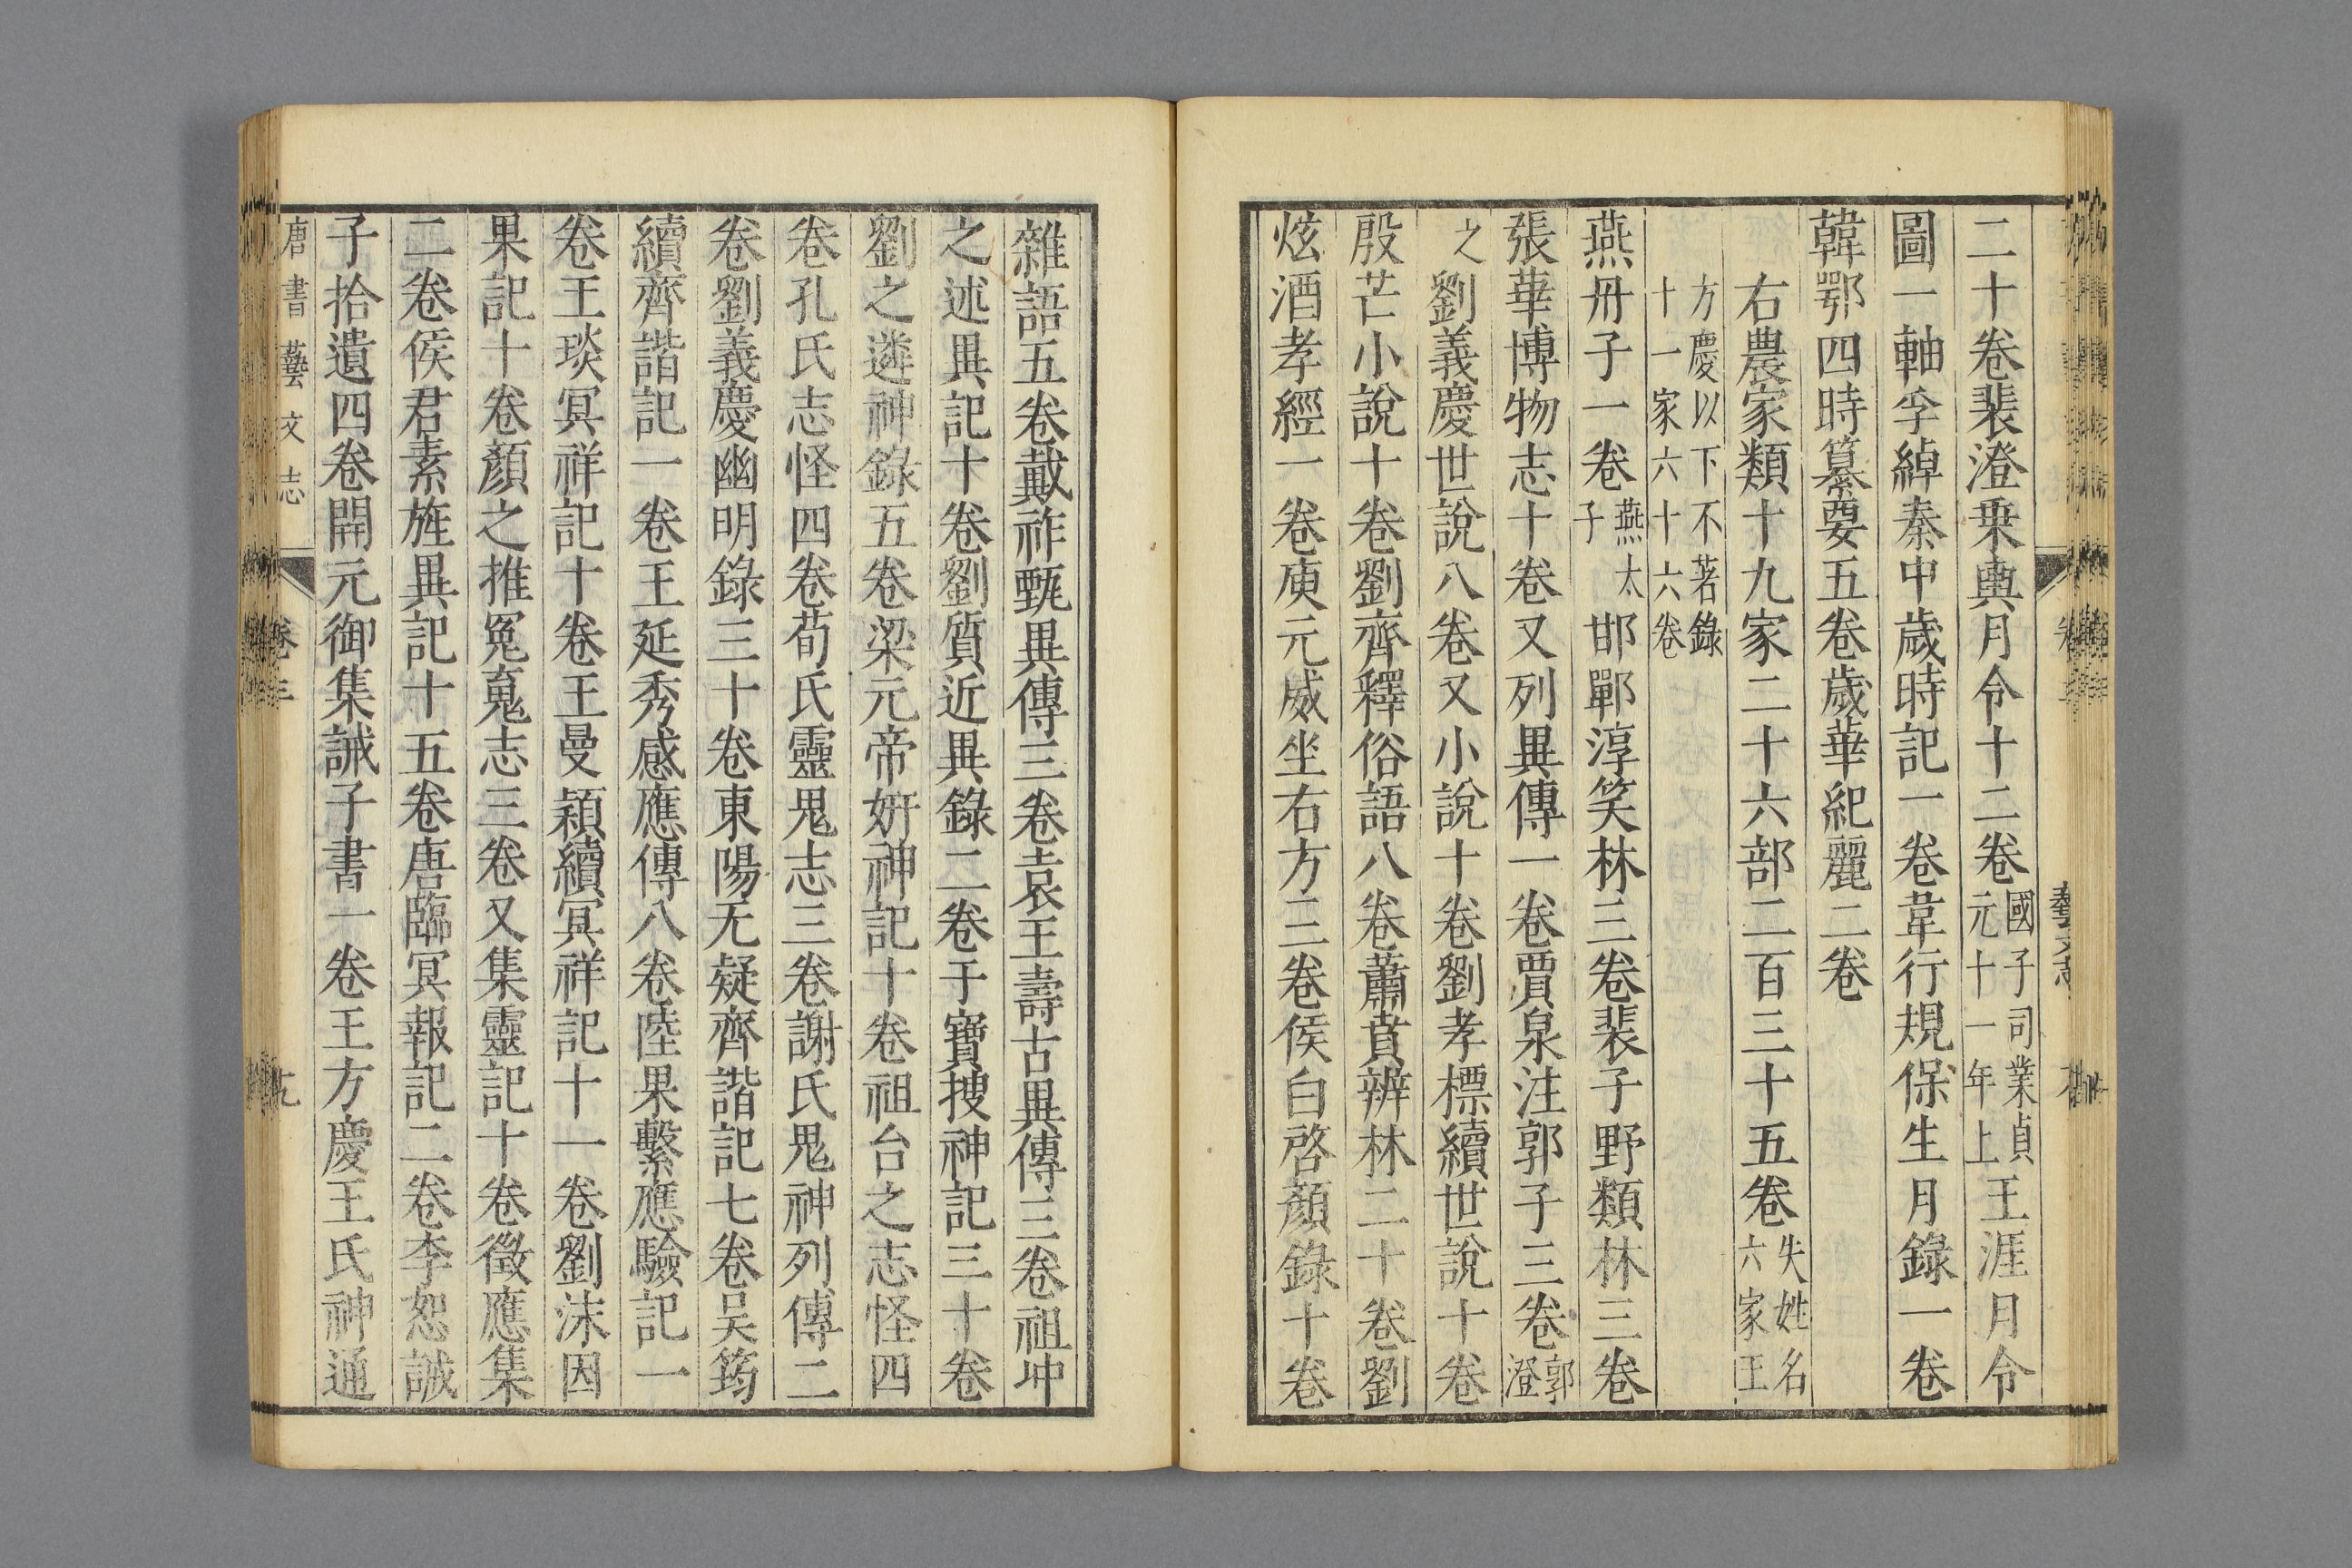 二十卷裴澄乗輿月令十二卷國子司業貞元十一年上王涯月令
圖一軸李綽秦中歲時記一卷韋行規保生月錄一卷
韓鄂四時纂要五卷歲華紀麗二卷
右農家類十九家二十六部二百三十五卷失姓名六家王
方慶以下不著錄十一家六十六卷
燕丹子一卷燕太子邯鄲淳笑林三卷裴子野類林三卷
張華博物志十卷又列異傳一卷賈泉注郭子三卷郭澄
之劉義慶世說八卷又小說十卷劉孝標續世說十卷
殷芒小說十卷劉齊釋俗語八卷蕭賁辨林二十卷劉
炫酒孝經一卷庾元威坐右方三卷侯白啓顏錄十卷
雜語五卷戴祚甄異傳三卷袁王壽古異傳三卷祖冲
之述異記十卷劉質近異錄二卷于寶搜神記三十卷
劉之遴神錄五卷梁元帝妍神記十卷祖台之志怪四
卷孔氏志怪四卷荀氏靈鬼志三卷謝氏鬼神列傳二
卷劉義慶幽明錄三十卷東陽无疑齊諧記七卷吳筠
續齊諧記一卷王延秀感應傳八卷陸果繫應驗記一
卷王琰冥祥記十卷王曼潁續冥祥記十一卷劉泳因
果記十卷顏之推冤魂志三卷又集靈記十卷徵應集
二卷侯君素旌異記十五卷唐臨冥報記二卷李恕誡
子拾遺四卷開元御集誡子書一卷王方慶王氏神通
唐書藝文志 卷三 十九